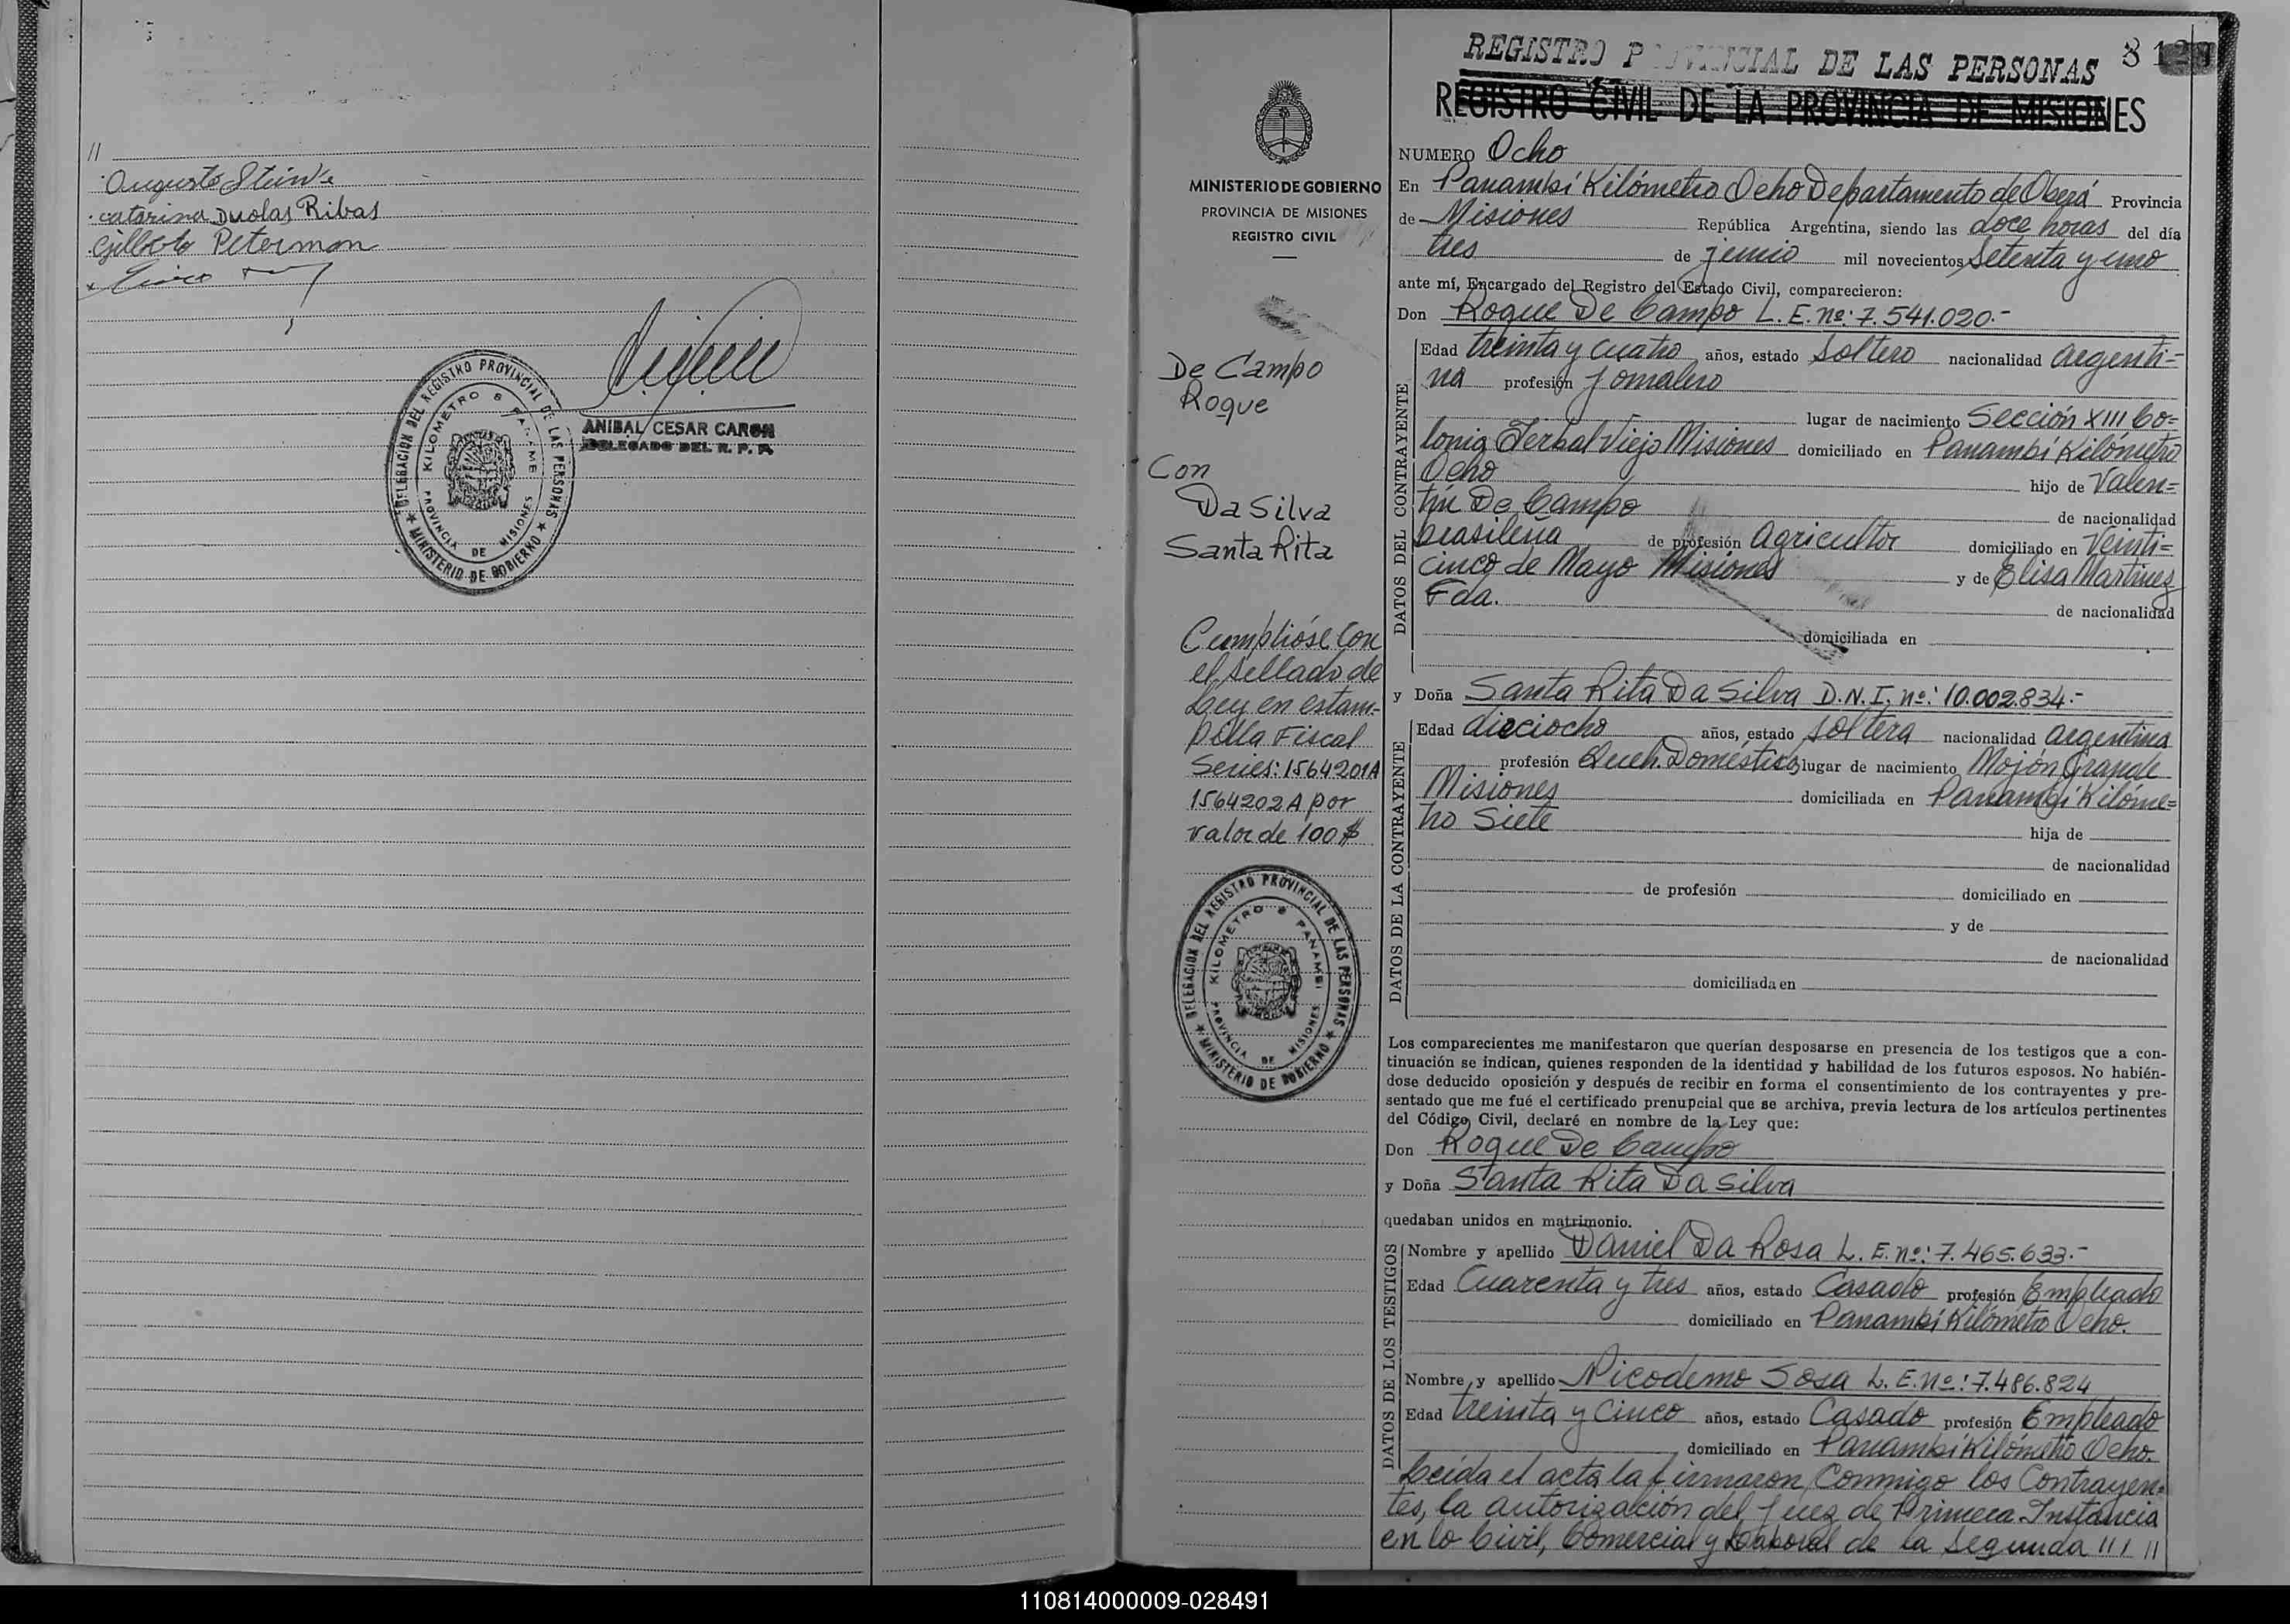 //
Augusto Steinke
catarina Duolas Ribas
Gilberto Peterman
DELEGACION DEL REGISTRO PROVINCIAL DE LAS PERSONAS
KILOMETRO 8 PANAMBI
PROVINCIA DE MISIONES
★ MINISTERIO DE GOBIERNO ★
ANIBAL CESAR CARON
DELEGADO DEL R. P. P.
MINISTERIO DE GOBIERNO
PROVINCIA DE MISIONES
REGISTRO CIVIL
De Campo
Roque
Con
Da Silva
Santa Rita
Cumplióse Con
el sellado de
Ley en estam-
pilla Fiscal
Series: 1564201A
1564202A por
valor de 100 $
DELEGACION DEL REGISTRO PROVINCIAL DE LAS PERSONAS
KILOMETRO 8 PANAMBI
PROVINCIA DE MISIONES
★ MINISTERIO DE GOBIERNO ★
REGISTRO PROVINCIAL DE LAS PERSONAS 8
REGISTRO CIVIL DE LA PROVINCIA DE MISIONES
NUMERO Ocho
En Panambí Kilómetro Ocho Departamento de Oberá Provincia
de Misiones República Argentina, siendo las doce horas del día
tres de junio mil novecientos Setenta y uno
ante mí, Encargado del Registro del Estado Civil, comparecieron:
Don Roque De Campo L. E. nº: 7.541.020.-
DATOS DEL CONTRAYENTE
Edad treinta y cuatro años, estado Soltero nacionalidad argenti=
na profesión Jornalero
lugar de nacimiento Sección XIII Co=
lonia Yerbal Viejo Misiones domiciliado en Panambí Kilómetro
Ocho hijo de Valen=
tín De Campo de nacionalidad
brasileña de profesión Agricultor domiciliado en Veinti=
cinco de Mayo Misiones y de Elisa Martinez
Fda. de nacionalidad
domiciliada en
y Doña Santa Rita Da Silva D.N.I. nº: 10.002.834.-
DATOS DE LA CONTRAYENTE
Edad dieciocho años, estado soltera nacionalidad argentina
profesión Queh. Domésticos lugar de nacimiento Mojón Grande
Misiones domiciliada en Panambí Kilóme=
tro Siete hija de
de nacionalidad
de profesión domiciliado en
y de
de nacionalidad
domiciliada en
Los comparecientes me manifestaron que querían desposarse en presencia de los testigos que a con-
tinuación se indican, quienes responden de la identidad y habilidad de los futuros esposos. No habién-
dose deducido oposición y después de recibir en forma el consentimiento de los contrayentes y pre-
sentado que me fué el certificado prenupcial que se archiva, previa lectura de los artículos pertinentes
del Código Civil, declaré en nombre de la Ley que:
Don Roque De Campo
y Doña Santa Rita Da Silva
quedaban unidos en matrimonio.
DATOS DE LOS TESTIGOS
Nombre y apellido Daniel Da Rosa L. E. nº: 7.465.633.-
Edad Cuarenta y tres años, estado Casado profesión Empleado
domiciliado en Panambí Kilómetro Ocho.
Nombre y apellido Nicodemo Sosa L. E. nº: 7.486.824
Edad treinta y cinco años, estado Casado profesión Empleado
domiciliado en Panambí Kilómetro Ocho.
Leída el acta la firmaron Conmigo los Contrayen=
tes, la autorización del Juez de Primera Instancia
en lo Civil, Comercial y Laboral de la segunda // / //
110814000009-028491